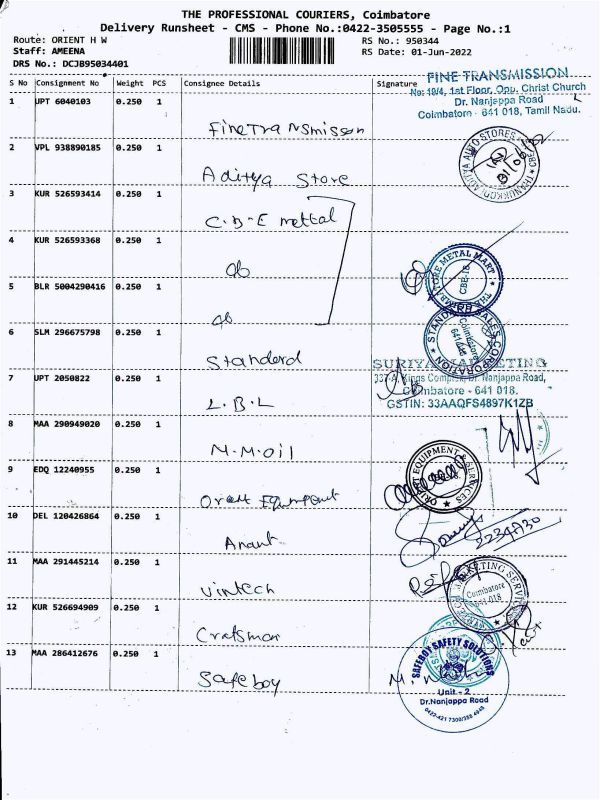 THE PROFESSIONAL COURIERS, Coimbatore
Delivery Runsheet - CMS - Phone No.:0422-3505555 - Page No.:1
Route: ORIENT H W
RS No.: 950344
Staff: AMEENA
RS Date: 01-Jun-2022
DRS No.: DCJB95034401
S No Consignment No Weight PCS Consignee Details Signature
FINE TRANSMISSION
No: 19/4, 1st Floor, Opp. Christ Church
Dr. Nanjappa Road
Coimbatore - 641 018, Tamil Nadu.
1 UPT 6040103 0.250 1
Fine Transmisson
2 VPL 938890185 0.250 1
Aditya Store
ADITYA AUTO STORES
3 KUR 526593414 0.250 1
C.B.E mettal
4 KUR 526593368 0.250 1
do
METAL MART
CBE-18
5 BLR 5004290416 0.250 1
do
6 SLM 296675798 0.250 1
Standerd
STANDARD SALES CORPORATION
Coimbatore
7 UPT 2050822 0.250 1
L.B.L
SURIYA MARKETING
Kings Complex, Dr. Nanjappa Road,
Coimbatore - 641 018.
GSTIN: 33AAQFS4897K1ZB
8 MAA 290949020 0.250 1
M.M.oil
9 EDQ 12240955 0.250 1
Orent Equipment
EQUIPMENT & SERVICES
10 DEL 120426864 0.250 1
Anant
11 MAA 291445214 0.250 1
Vintech
Coimbatore
641 018
12 KUR 526694909 0.250 1
Craftsman
13 MAA 286412676 0.250 1
Safeboy
SAFEBOY SAFETY SOLUTIONS
Unit - 2
Dr.Nanjappa Road